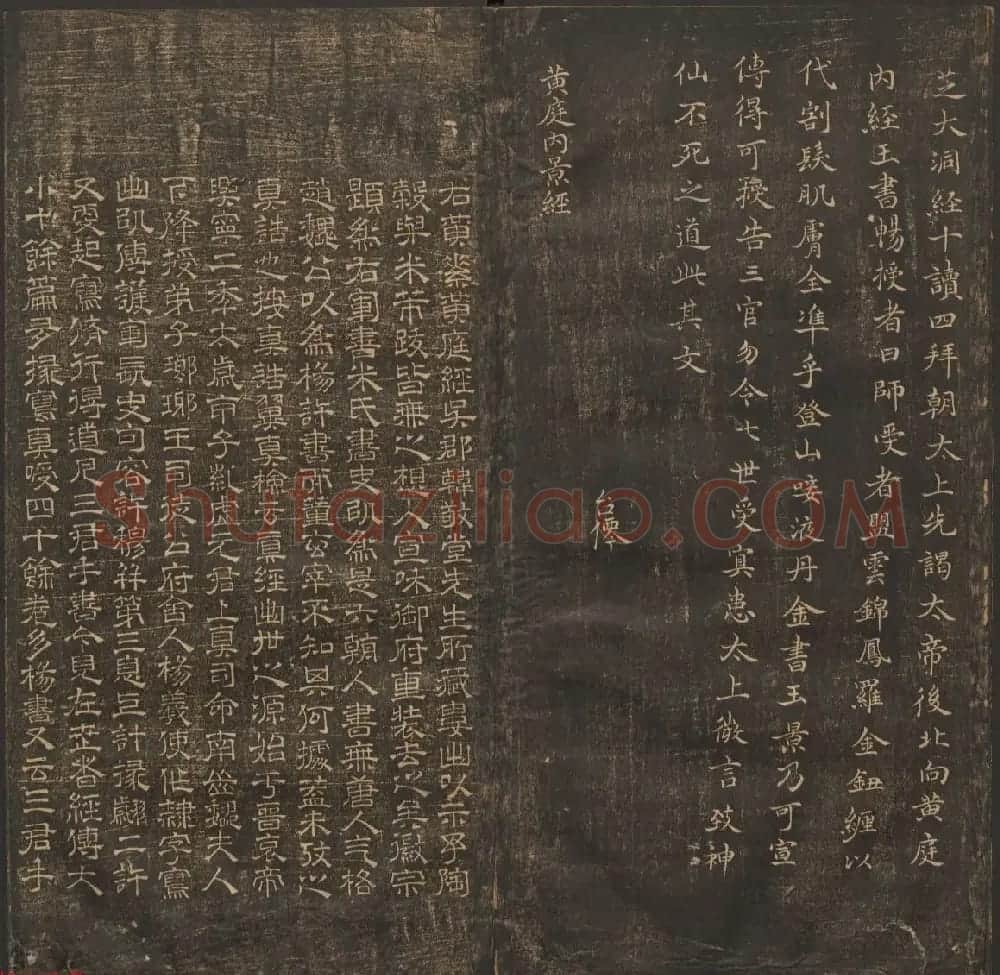 芝大洞經十讀四拜朝太上先謁太帝後北向黃庭
內經玉書暢授者曰師受者盟雲錦鳳羅金鈕纏以
代割髮肌膚全準乎登山歃液丹金書玉景乃可宣
傳得可授告三官勿令七世受冥患太上微言致神
仙不死之道此其文
黃庭內景經
右黃素黃庭經吳郡韓敬堂先生所藏嘗出以示予陶
穀與米芾跋皆無之想入宣咊御府重裝去之矣徽宗
題為右軍書米氏書史以為是六朝人書無唐人气格
趙魏公以為楊許書亦宰不知其何據蓋未攷之
真誥也按真誥翼真檢云真經出世之源始于晉哀帝
興寧二年太歲甲子紫虛元君上真司命南嶽魏夫人
下降授弟子瑯琊王司徒公府舍人楊羲使作隸字寫
出以傳護軍長史句容許穆并第三息上計掾翽二許
又更起寫修行得道凡三君手書今見在世者經傳大
小十餘篇多掾寫真授四十餘卷多楊書又云三君手
Shufaziliao.com